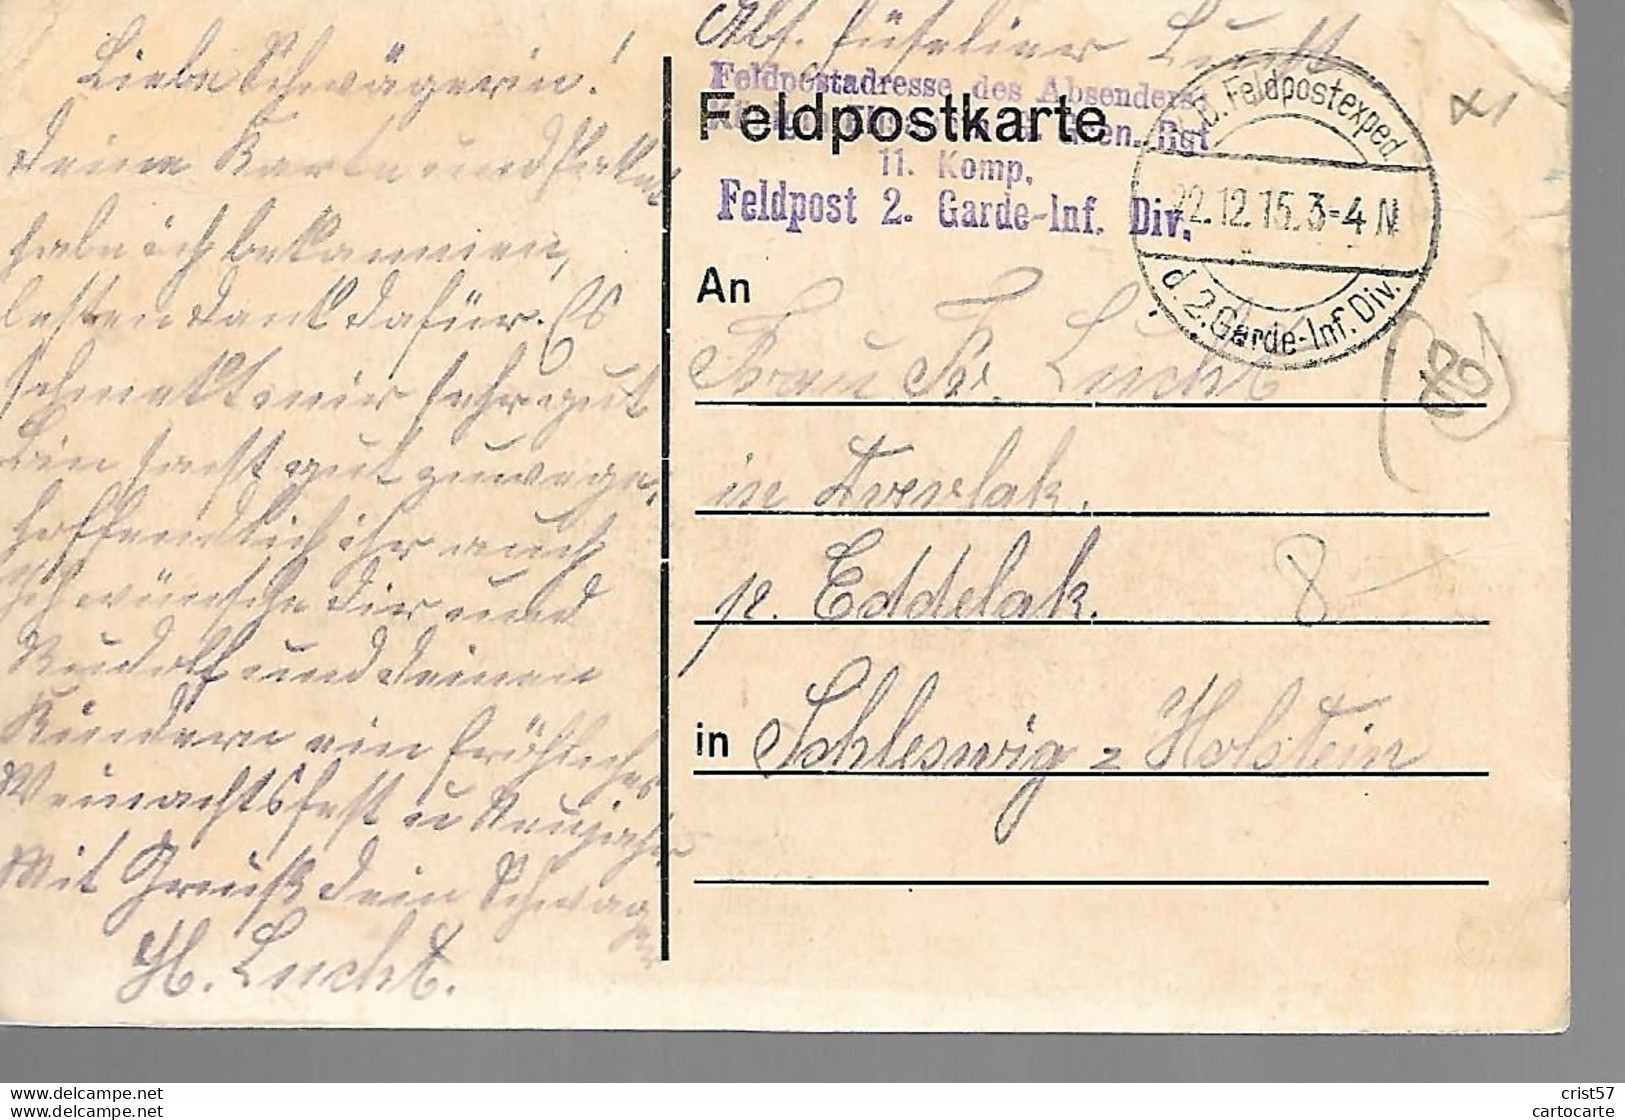 Liebe Schwägerin!
Deine Karte und Paket
habe ich bekommen,
besten Dank dafür. Es
schmeckt mir sehr gut
bin sonst gut zuwege,
hoffendlich ihr auch
Ich wünsche Dir und
Rudolf und Deinen
Kindern ein fröhliches
Weinachtsfest u Neujahr
Mit Gruß Dein Schwager
H. Lucht.
Abs. Füselier Lucht
Feldpostadresse des Absenders:
Feldpostkarte
Gren. Rgt
11. Komp.
Feldpost 2. Garde-Inf. Div.
K.D. Feldpostexped
22.12.15. 3-4 N
d. 2. Garde-Inf. Div.
An
Frau Fr. Lucht
in Averlak.
p. Eddelak.
8-
in Schleswig = Holstein
crist57
cartocarte